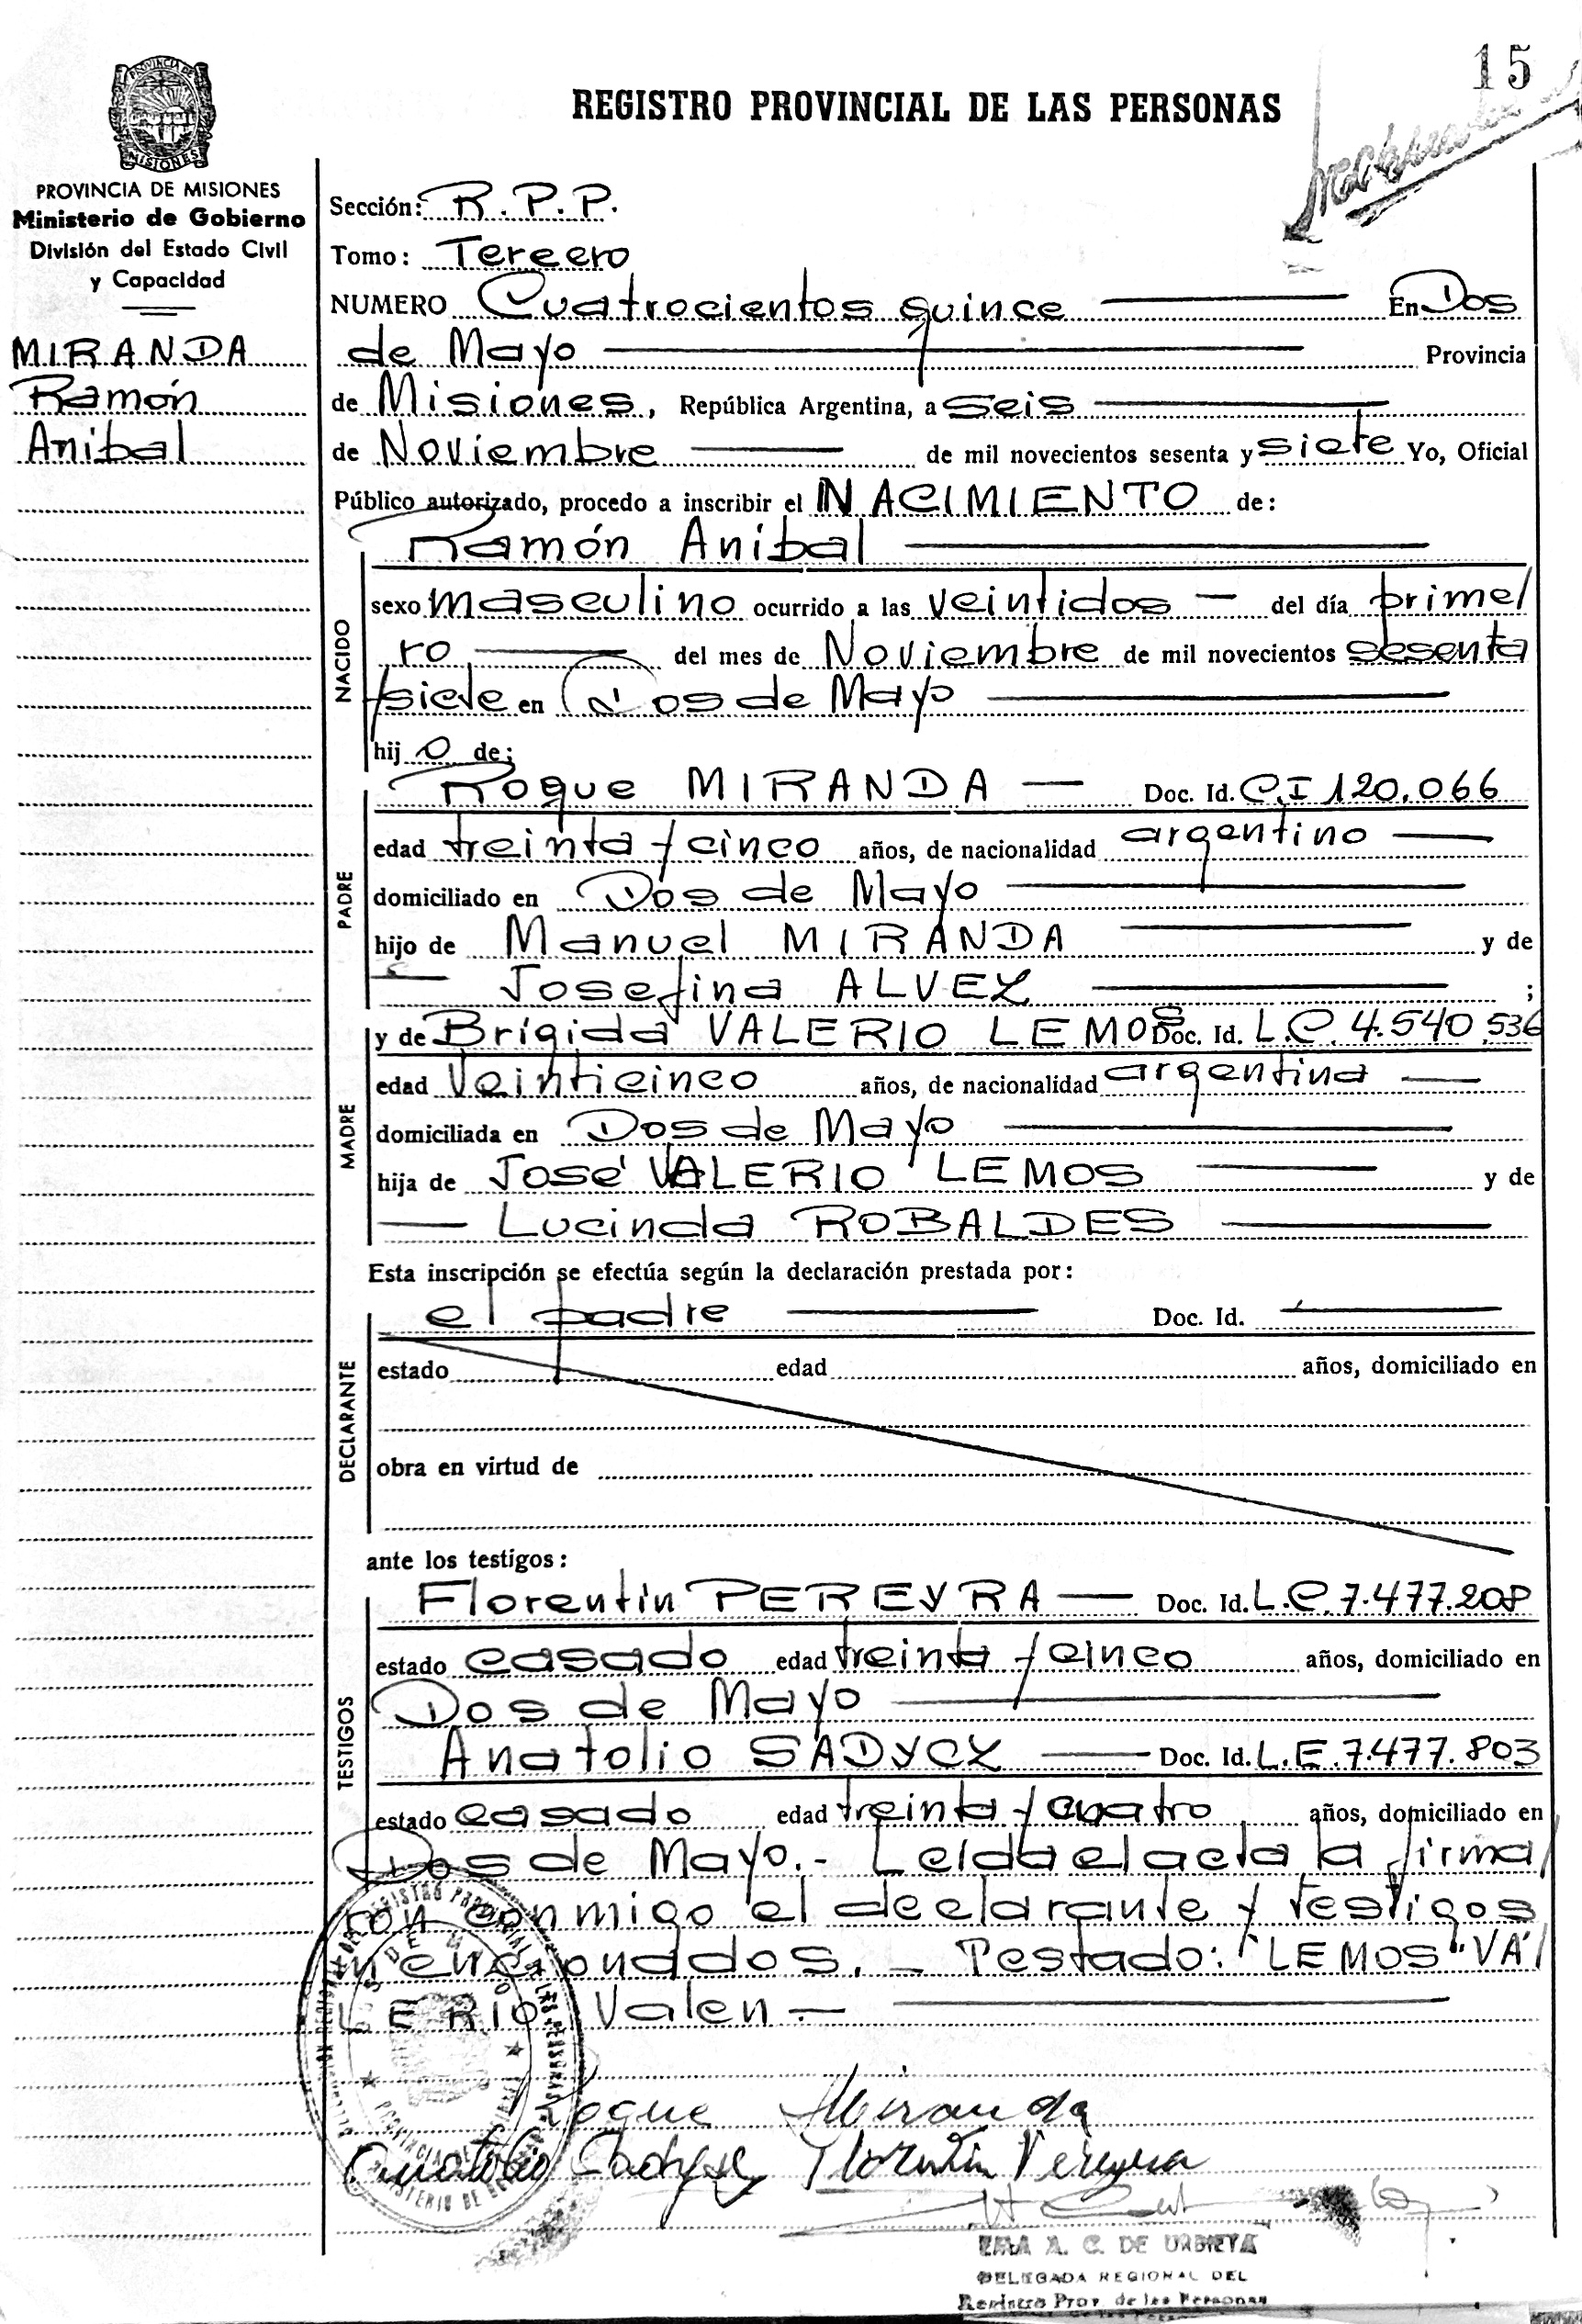 15
REGISTRO PROVINCIAL DE LAS PERSONAS
PROVINCIA DE
MISIONES
PROVINCIA DE MISIONES
Ministerio de Gobierno
División del Estado Civil
y Capacidad
MIRANDA
Ramón
Anibal
Sección: R.P.P.
Tomo: Tercero
NUMERO Cuatrocientos quince En Dos
de Mayo Provincia
de Misiones, República Argentina, a seis
de Noviembre de mil novecientos sesenta y siete Yo, Oficial
Público autorizado, procedo a inscribir el NACIMIENTO de:
NACIDO
Ramón Anibal
sexo masculino ocurrido a las veintidos — del día prime/
ro del mes de Noviembre de mil novecientos sesenta
/siete en Dos de Mayo
hijo de:
PADRE
Roque MIRANDA — Doc. Id. C.I 120.066
edad treinta y cinco años, de nacionalidad argentino
domiciliado en Dos de Mayo
hijo de Manuel MIRANDA y de
Josefina ALVEZ ;
MADRE
y de Brígida VALERIO LEMOS Doc. Id. L.C. 4.540.536
edad Veinticinco años, de nacionalidad argentina
domiciliada en Dos de Mayo
hija de José VALERIO LEMOS y de
Lucinda ROBALDES
Esta inscripción se efectúa según la declaración prestada por:
DECLARANTE
el padre Doc. Id.
estado edad años, domiciliado en
obra en virtud de
ante los testigos:
TESTIGOS
Florentin PEREYRA — Doc. Id. L.C. 7.477.208
estado casado edad treinta y cinco años, domiciliado en
Dos de Mayo
Anatolio SADYCZ — Doc. Id. L.E. 7.477.803
estado casado edad treinta y cuatro años, domiciliado en
Dos de Mayo.- Leída el acta la firma/
ron conmigo el declarante y testigos
mencionados. — Testado: "LEMOS" VA/
LERIO Valen —
Roque Miranda
Anatolio Sadycz Florentin Pereyra
A. C. DE URBIETA
DELEGADA REGIONAL DEL
Registro Prov. de las Personas